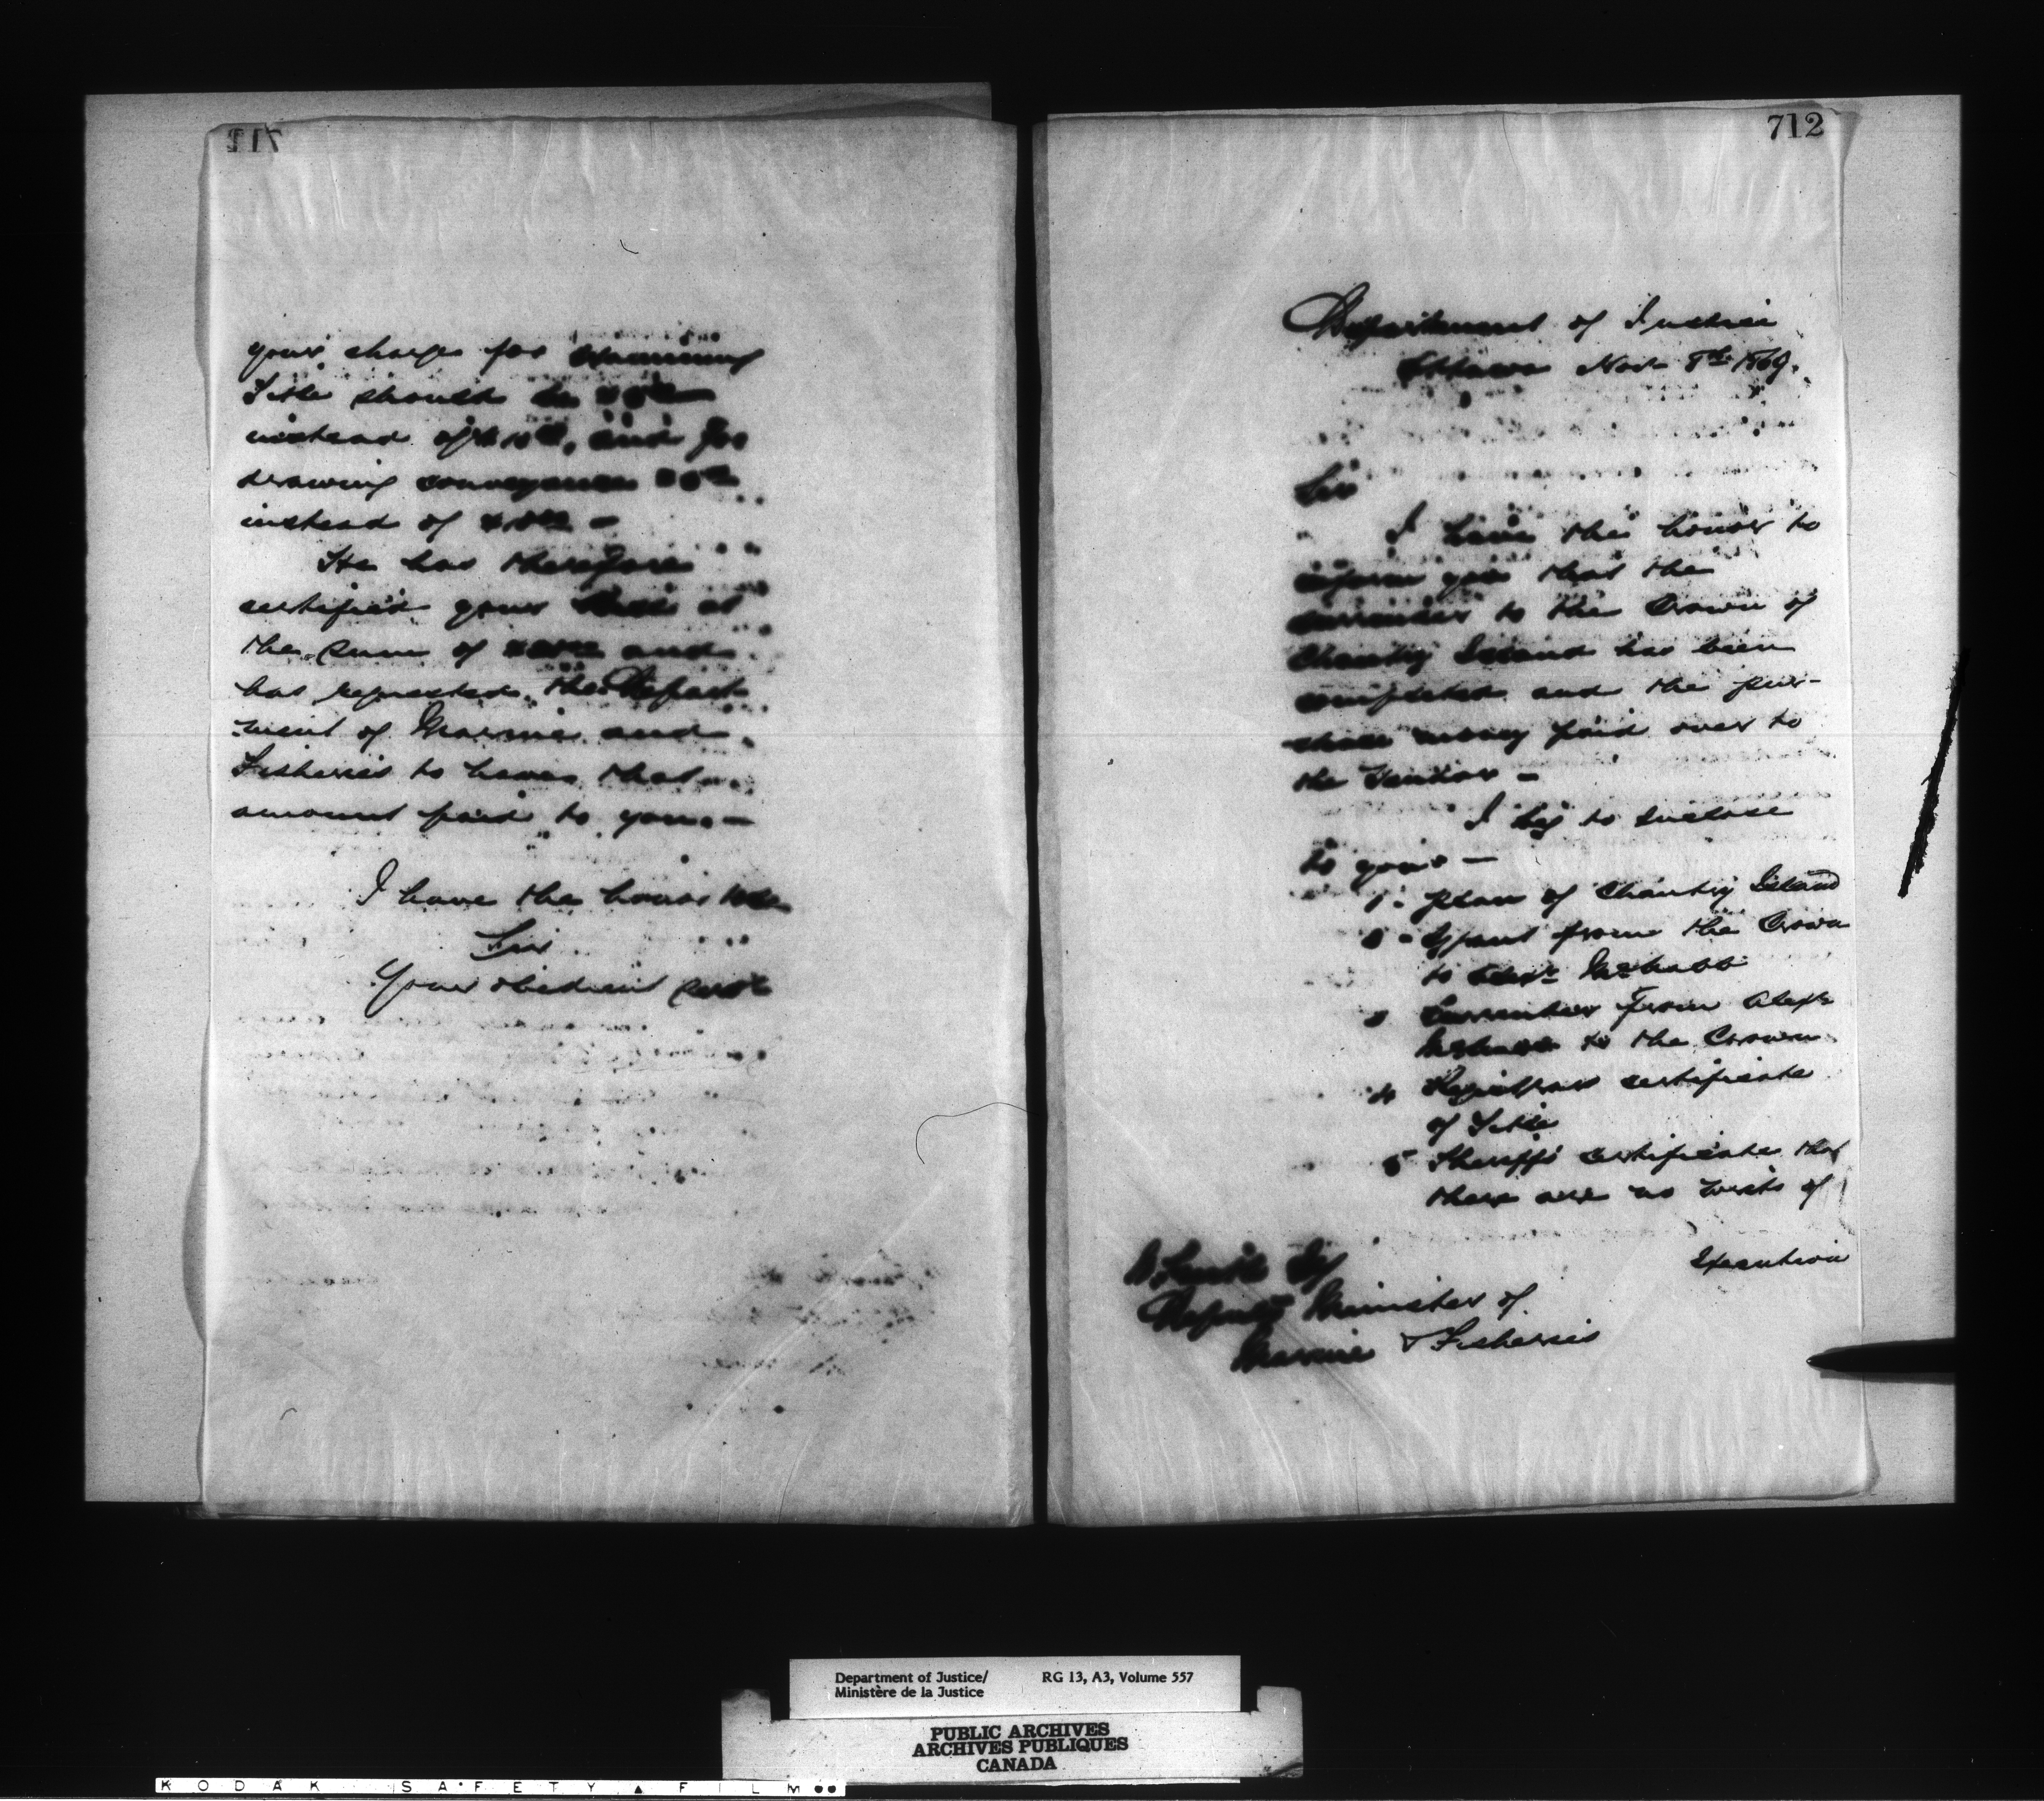 your charge for examining
Title should be
instead of and for
drawing conveyance
instead of
He has therefore
certified your Bill at
the sum of and
has requested the Depart-
ment of Marine and
Fisheries to have that
amount paid to you. —
I have the honor to be
Sir
Your obedient servt
712
Department of Justice
Ottawa Nov. 8th 1869.
Sir
I have the honor to
inform you that the
surrender to the Crown of
Chantry Island has been
completed and the pur-
chase money paid over to
the Vendor —
I beg to enclose
to you —
1 - plan of Chantry Island
2 - Grant from the Crown
to Alexr McNabb
3 Surrender from Alexr
McNabb to the Crown
4 Registrars certificate
of Title
5 Sheriffs certificate that
there are no writs of
Execution
W. Smith Esq
Deputy Minister of
Marine & Fisheries
Department of Justice/ RG 13, A3, Volume 557
Ministère de la Justice
PUBLIC ARCHIVES
ARCHIVES PUBLIQUES
CANADA
KODAK SAFETY FILM